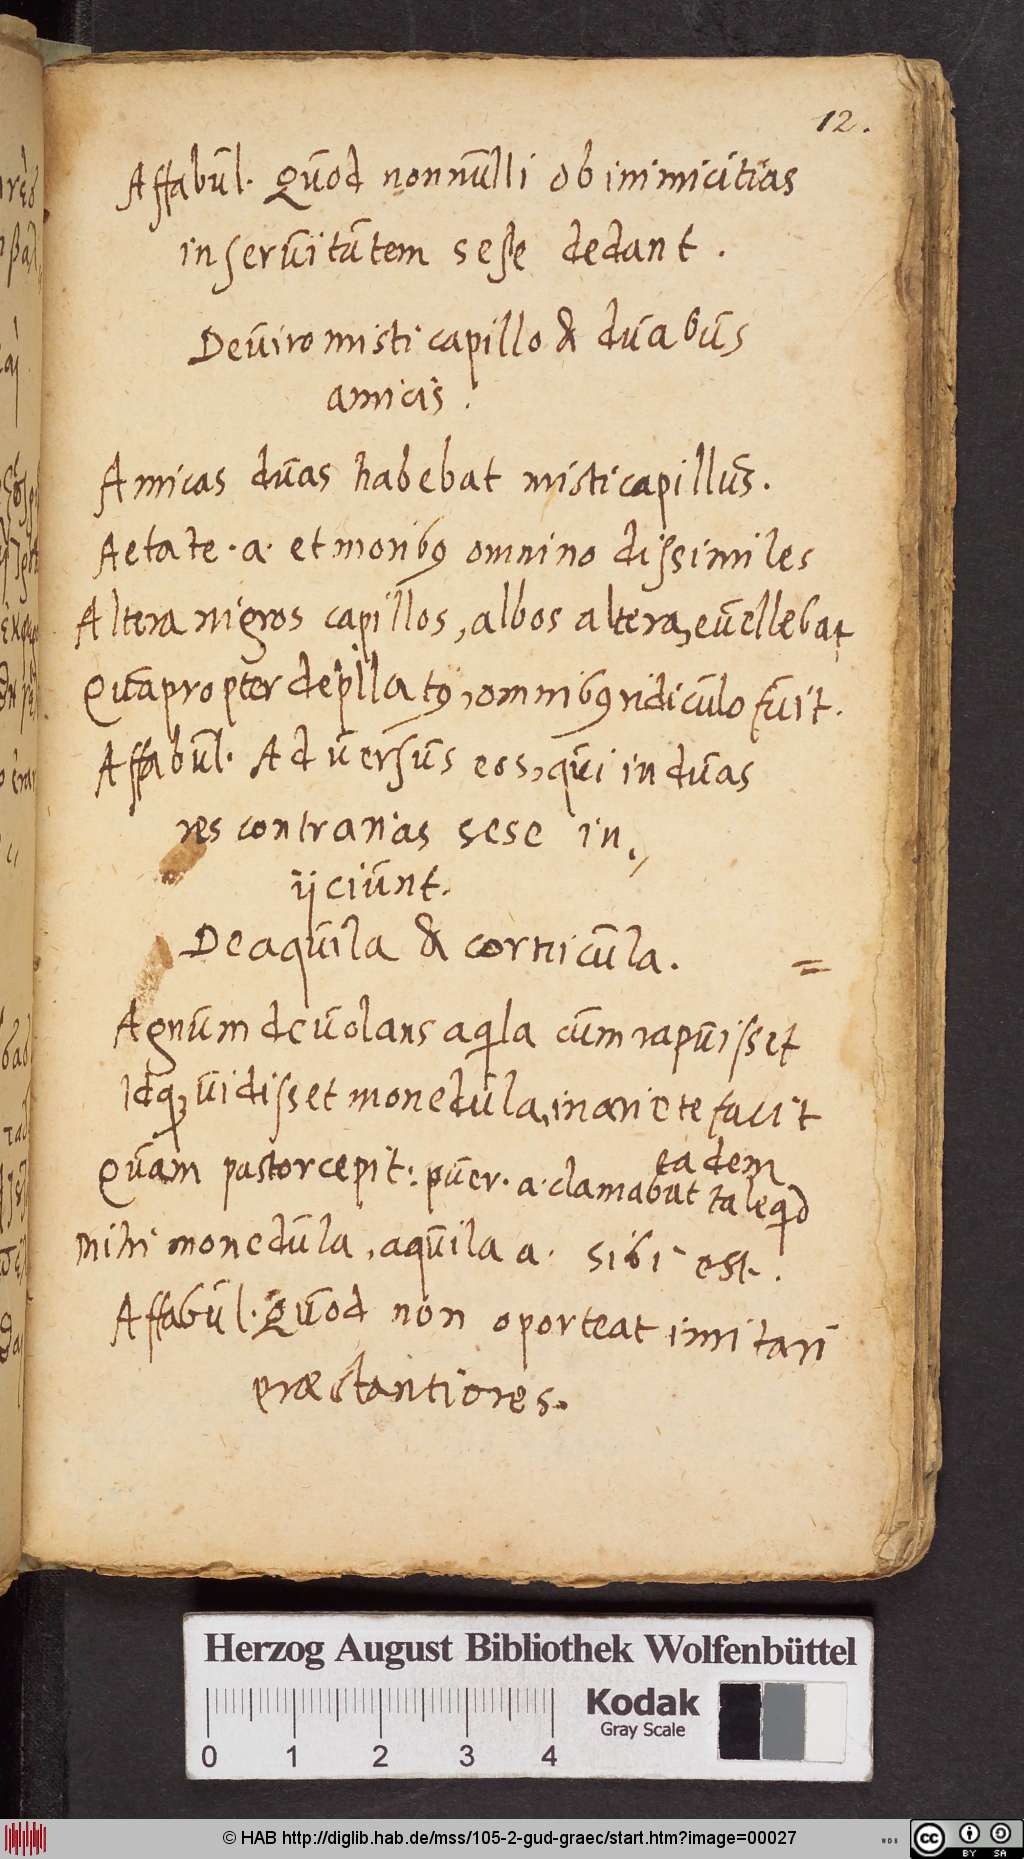 12.
Affabul. Quod nonnulli ob inimicitias
in seruitutem sese dedant.
De uiro misti capillo & duabus
amicis.
Amicas duas habebat misticapillus.
Aetate .a. et moribꝰ omnino dissimiles
Altera nigros capillos, albos altera, euellebat
Quapropter depillatꝰ, omnibꝰ ridiculo fuit.
Affabul. Aduersus eos, qui in duas
res contrarias sese in,,
ijciunt.
De aquila & cornicula. =
Agnum deuolans aqila cum rapuisset
Idqꝫ uidisset monedula, in ariete facit
Quam pastor cepit: puer .a. clamabat eadem taleqd
mihi monedula, aquila a. sibi est.
Affabul. Quod non oporteat imitari
præstantiores.
Herzog August Bibliothek Wolfenbüttel
Kodak
Gray Scale
0 1 2 3 4
© HAB http://diglib.hab.de/mss/105-2-gud-graec/start.htm?image=00027
WDB
cc BY SA